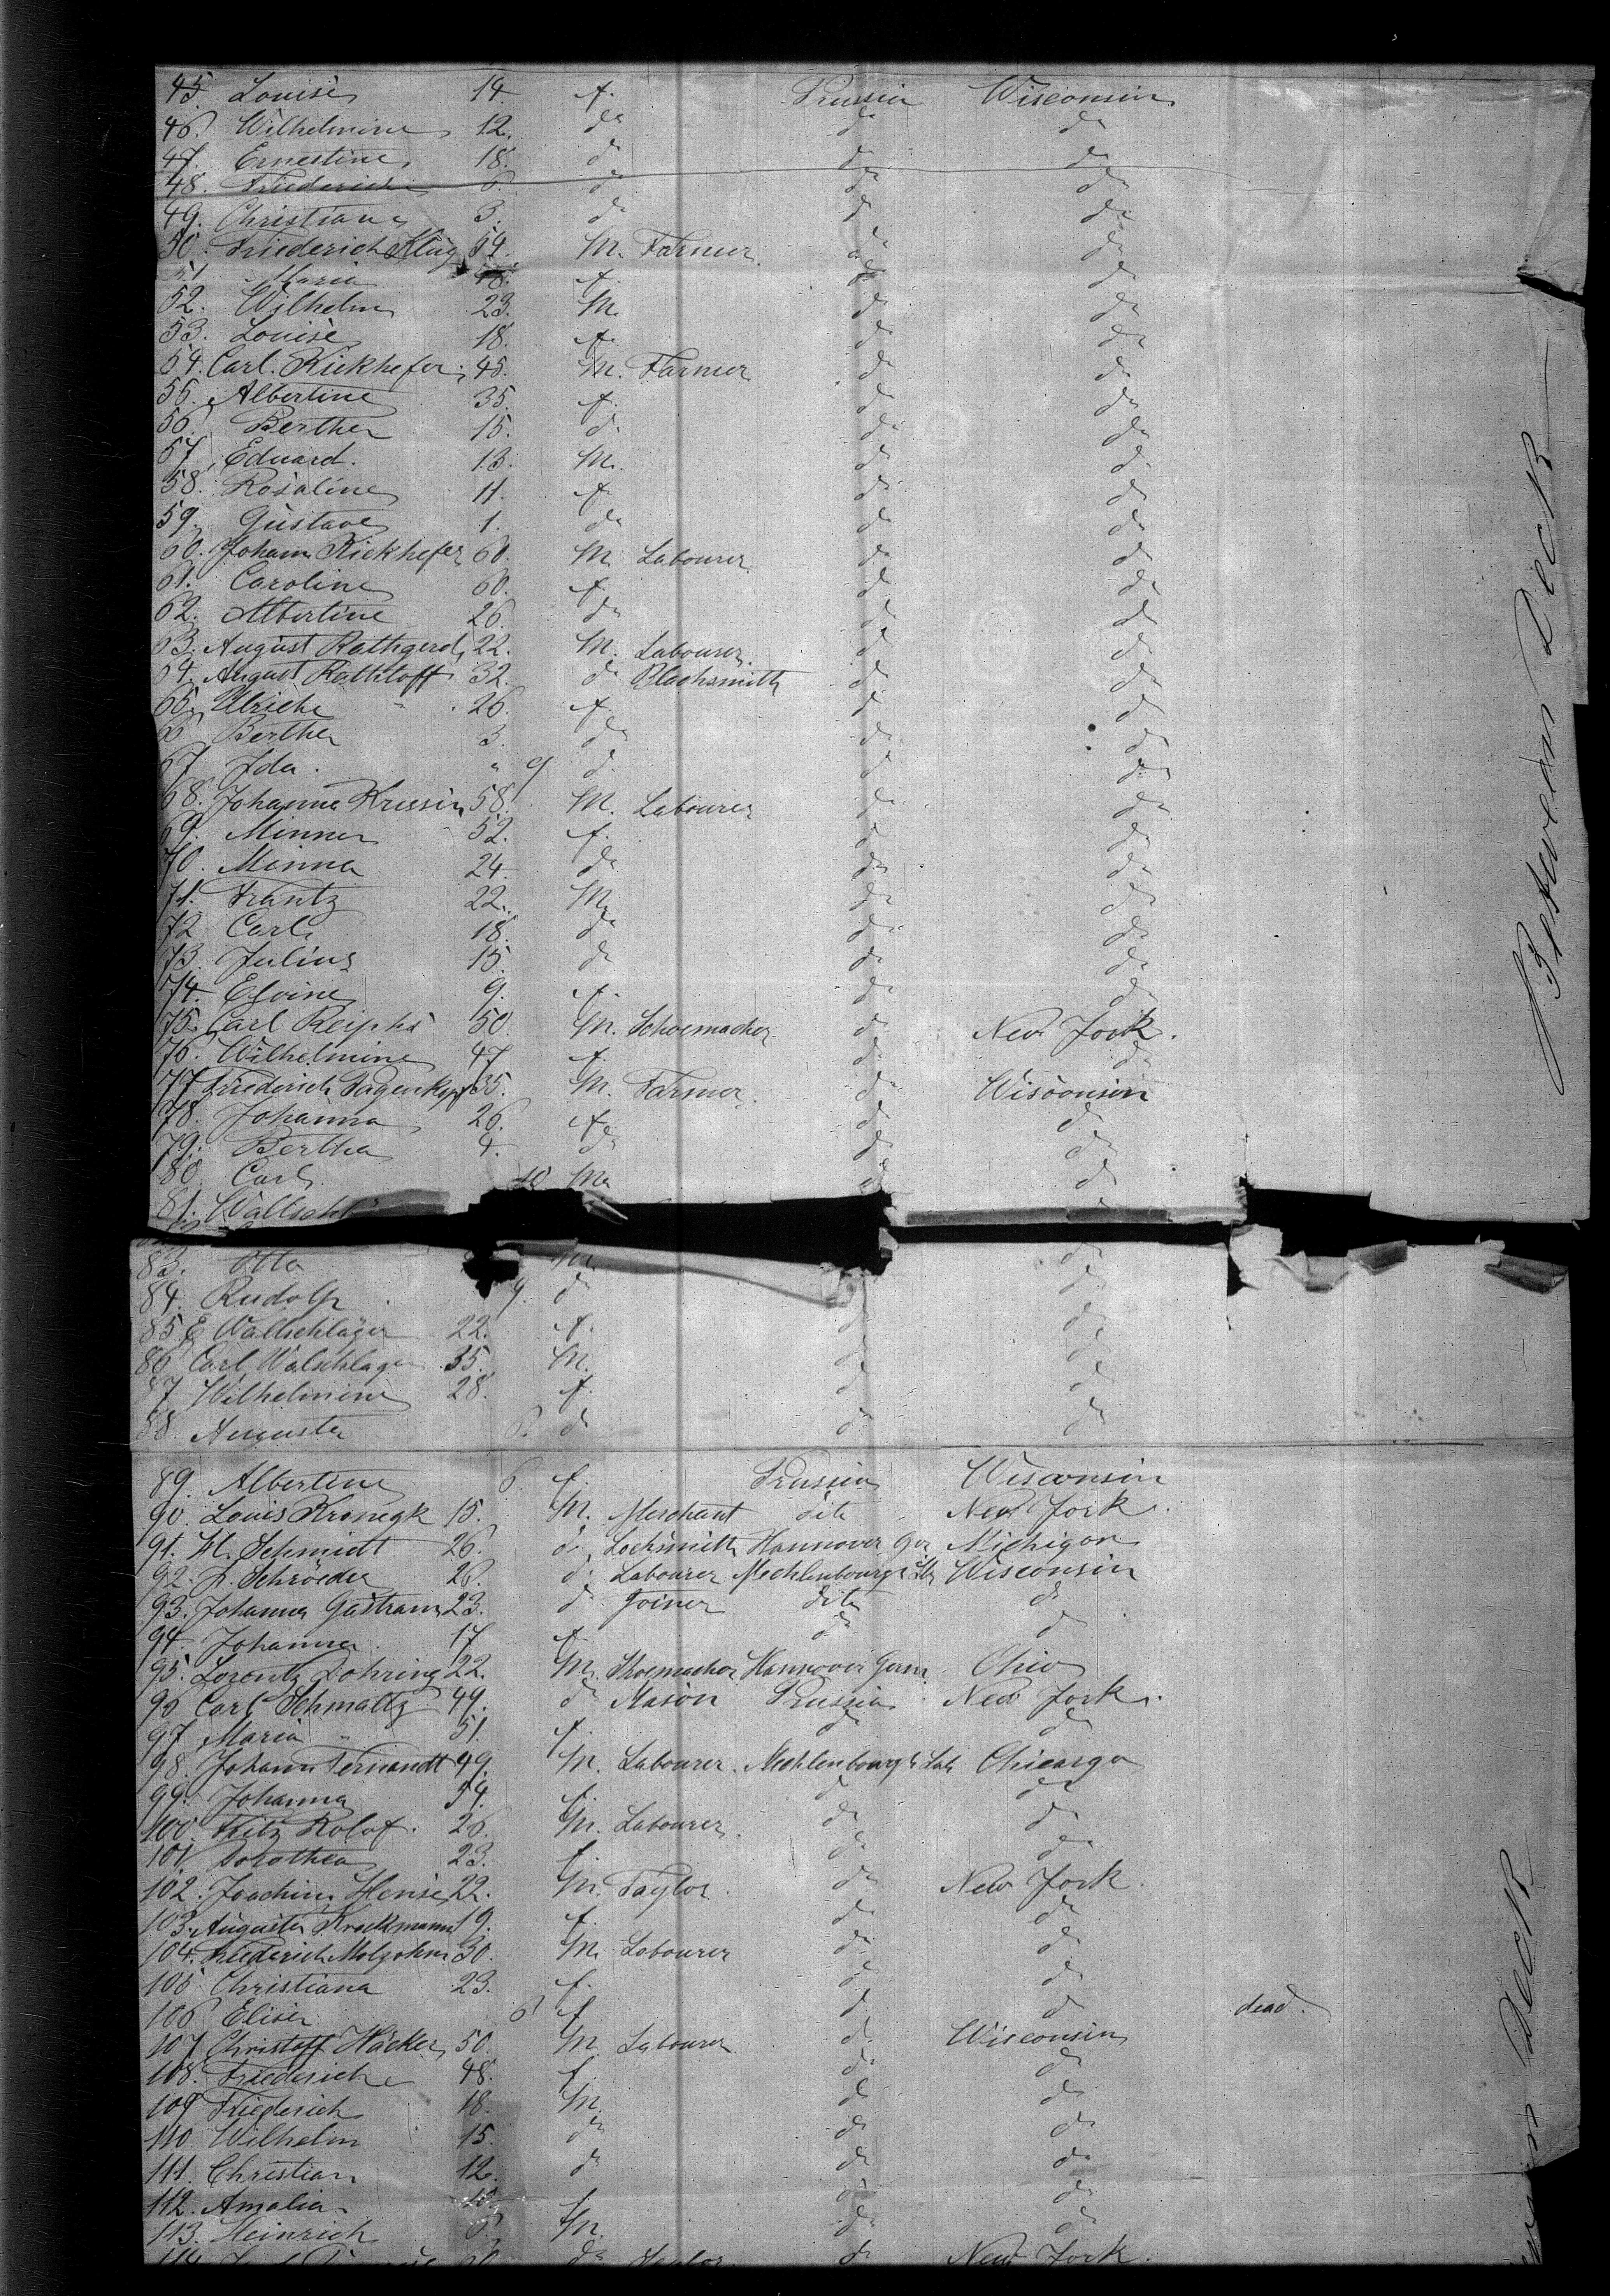 45. Louise 14. f. Prussia Wisconsin
46. Wilhelmine 12. do do do
47. Ernestine 18. do do do
48. Friederike 6. do do do
49. Christiane 3. do do do
50. Friederich Klug 54. M. Farmer do do
51 Maria 48. f. do do
52. Wilhelm 23. M. do do
53. Louise 18. f. do do
54. Carl. Kiekhefer 45. M. Farmer do do
55. Albertine 35. f. do do
56. Bertha 15. do do do
57. Eduard. 13. M. do do
58. Rosaline 11. f. do do
59. Gustave 1. do do do
60. Johann Kiekhefer 60. M. Labourer do do
61. Caroline 60. f. do do
62. Albertine 26. do do do
63. August 22. M. Labourer do do
64. August Rathloff 32. do Blacksmith do do
65. Ulricke " 26. f. do do
66 Bertha 3. do do do
67 Ida. " 9 do do do
68. Johanna 58. M. Labourer do do
69. Minna 52. f. do do
70. Minna 24. do do do
71. Frantz 22. M. do do
72 Carl 18. do do do
73. Julius 15. do do do
74. 9. f. do do
75. Carl 50. M. Schoemacher do New Jork.
76. Wilhelmine 47 f. do do
77. Friederich Pagenkopf 35. M. Farmer do Wisconsin
78. Johanna 26. f. do do
79. Bertha 4. do do do
80. Carl 10 M. do do
81. do
83. Otto M. do
84. Rudolf 9. do do do
85. E Wallschläger 22. f. do do
86 Carl Walschlager 35. M. do do
87 Wilhelmine 28. f. do do
88. Augusta 6. do do do
89. Albertine 6. f. Prussia Wisconsin
90. Louis 15. M. Merchant dito New Jork.
91. H. Schmidt 26. do Locksmith Hannover Ger Michigan
92. Schröeder 26. do Labourer Mechlenbourg Wisconsin
93. Johanna 23. do Joiner dito do
94. Johanna 17 f. do do
95. Lorentz Dohring 22. M. Shoemachor Hannover Germ Ohio
96 Carl Schmaltz 49. do Mason Prussia New Jork.
97 Maria " 51. f. do do
98. Johann 49. M. Labourer. Mechlenbourgh Chicargo
99. Johanna 54. f. do do
100 Fritz Rolof. 26. M. Labourer. do do
101 Dorothea 23. f. do do
102. Joachim Hense 22. M. Taylor. do New Jork.
103. Augusta Krackmann 19. f. do do
104. Friederich Molzohm 30. M. Labourer do do
105 Christiana 23. f. do do
106 Elise 6 f do do dead.
107 Christoff Häcker 50. M. Labourer do Wisconsin
108. Friederich 48. f. do do
109 Friederich 18. M. do do
110 Wilhelm 15. do do do
111. Christian 12. do do do
112. Amalia f. do do
113. Heinrich 6. M. do do
do Taylor. do New Jork.
Between Deck
Deck